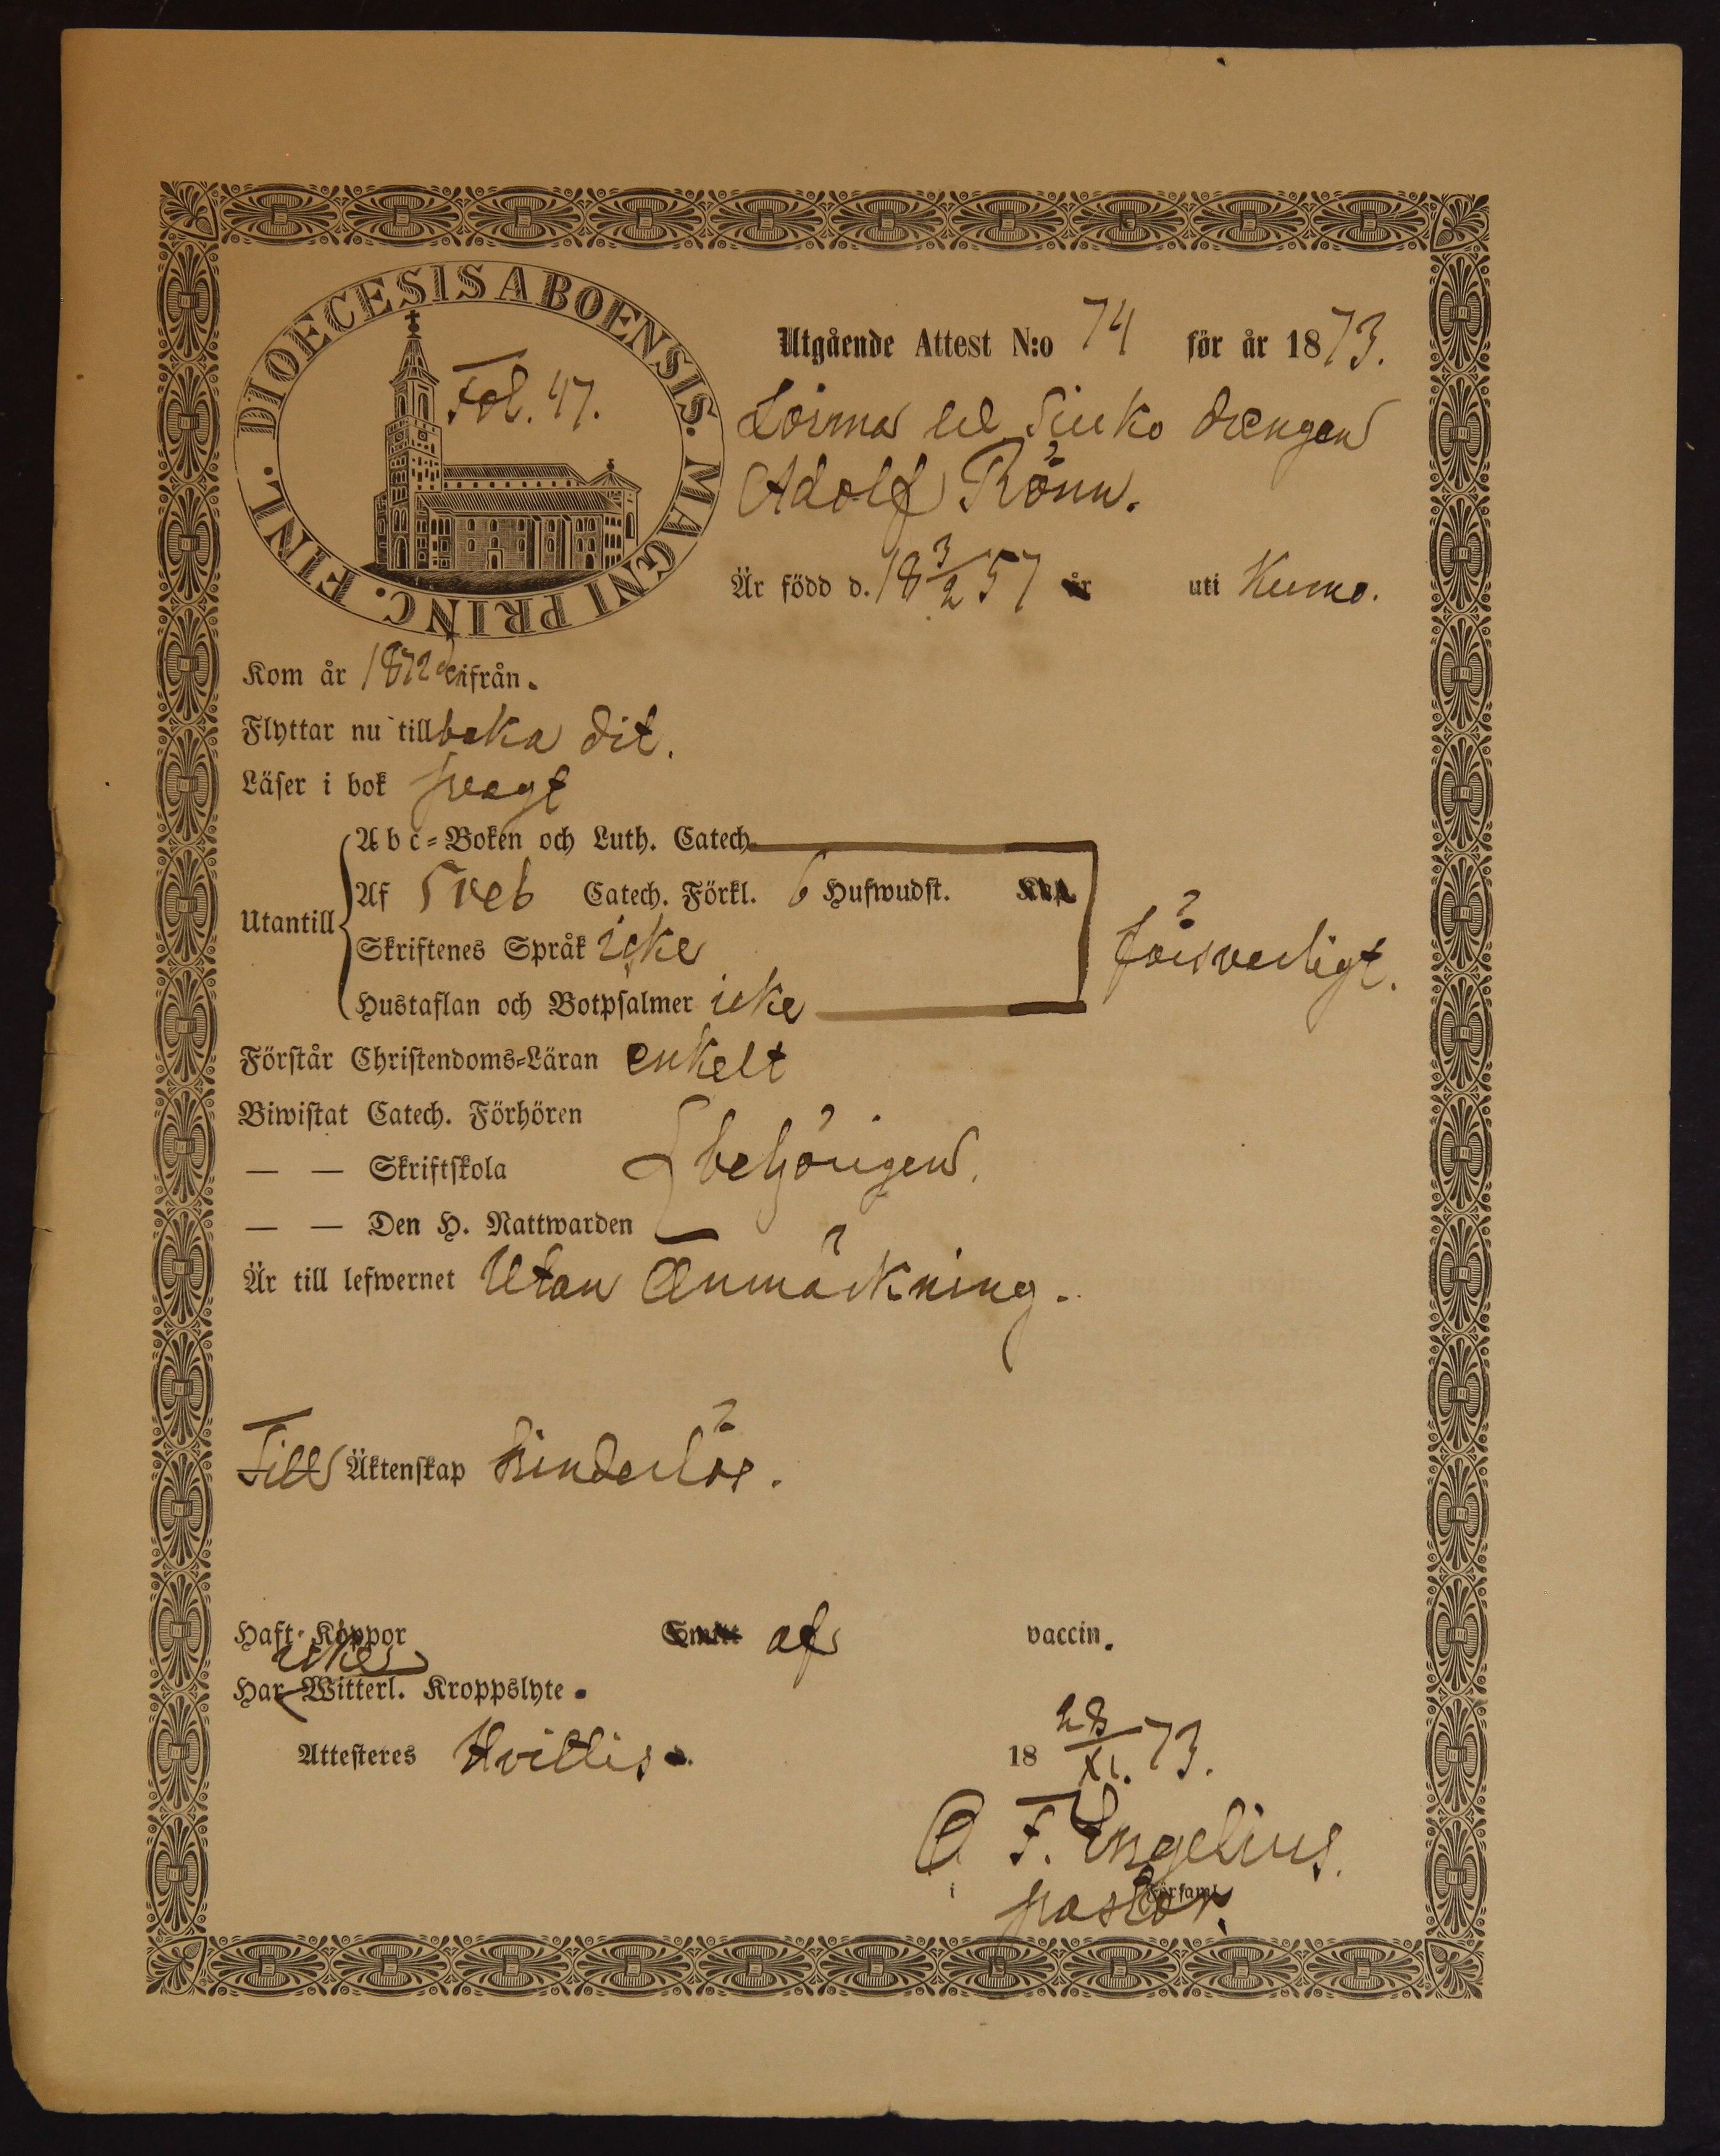 DIOECESIS ABOENSIS. MAGNI PRINC. FINL.
Fol. 47.
Utgående Attest N:o 74 för år 1873.
Loima lill drengen
Adolf Rönn.
Är född d. 18 3/2 57 år uti Kumo.
Kom år 1872 derifrån.
Flyttar nu tillbaka dit.
Läser i bok svagt
Utantill
Abc=Boken och Luth. Catech.
Af Sveb Catech. Förkl. 6 Hufwudst.
Skriftenes Språk icke
Hustaflan och Botpsalmer icke
försvarligt.
Förstår Christendoms=Läran enkelt
Biwistat Catech. Förhören
— — Skriftskola behörigen.
— — Den H. Nattwarden
Är till lefwernet Utan Anmärkning.
Till Äktenskap hinderlös.
Haft Koppor af vaccin.
icke
Har Witterl. Kroppslyte.
Attesteres Hvittis. 18 28/XI. 73.
F. Engelius.
i Församl.
pastor.